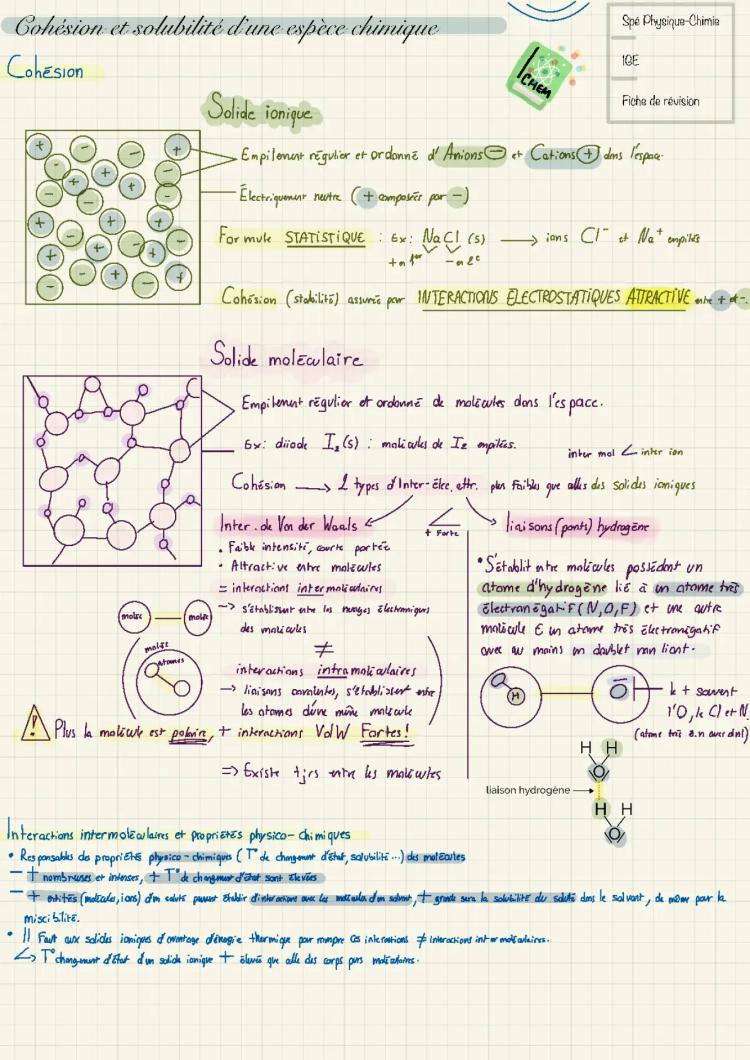 Cohésion et solubilité d'une espèce chimique
Spé Physique-Chimie
1GE
Fiche de révision
CHEM
Cohésion
Solide ionique
Empilement régulier et ordonné d'Anions ⊖ et Cations ⊕ dans l'espace.
Électriquement neutre (+ composés par -)
Formule STATISTIQUE : Ex: NaCl (s) ⟶ ions Cl⁻ et Na⁺ empilés
+ en 1er - en 2e
Cohésion (stabilité) assurée par INTERACTIONS ÉLECTROSTATIQUES ATTRACTIVE entre + et -.
Solide moléculaire
Empilement régulier et ordonné de molécules dans l'espace.
Ex: diiode I₂(s) : molécules de I₂ empilées.
inter mol ∠ inter ion
Cohésion ⟶ 2 types d'Inter-élec. attr. plus faibles que celles des solides ioniques
Inter. de Van der Waals
+ forte
liaisons (ponts) hydrogène
• Faible intensité, courte portée
• Attractive entre molécules
= interactions intermoléculaires
-> s'établissent entre les nuages électroniques
des molécules
≠
interactions intramoléculaires
-> liaisons covalentes, s'établissent entre
les atomes d'une même molécule
moléc moléc
moléc
atomes
• S'établit entre molécules possédant un
atome d'hydrogène lié à un atome très
électronégatif (N,O,F) et une autre
molécule € un atome très électronégatif
avec au moins un doublet non liant.
H O
le + souvent
l'O, le Cl et N
(atome très é.n avec dnl)
! Plus la molécule est polaire, + interactions VdW Fortes!
=> Existe tjrs entre les molécules
H H
O
liaison hydrogène
H H
O
Interactions intermoléculaires et propriétés physico-chimiques
• Responsables des propriétés physico-chimiques (T° de changement d'état, solubilité...) des molécules
- + nombreuses et intenses, + T° de changement d'état sont élevées
- + entités (molécules, ions) d'un soluté peuvent établir d'interactions avec les molécules d'un solvant, + grande sera la solubilité du soluté dans le solvant, de même pour la
miscibilité.
• Il faut aux solides ioniques d'avantage d'énergie thermique pour rompre ces interactions ≠ interactions intermoléculaires.
↳ T° changement d'état d'un solide ionique + élevée que celle des corps purs moléculaires.